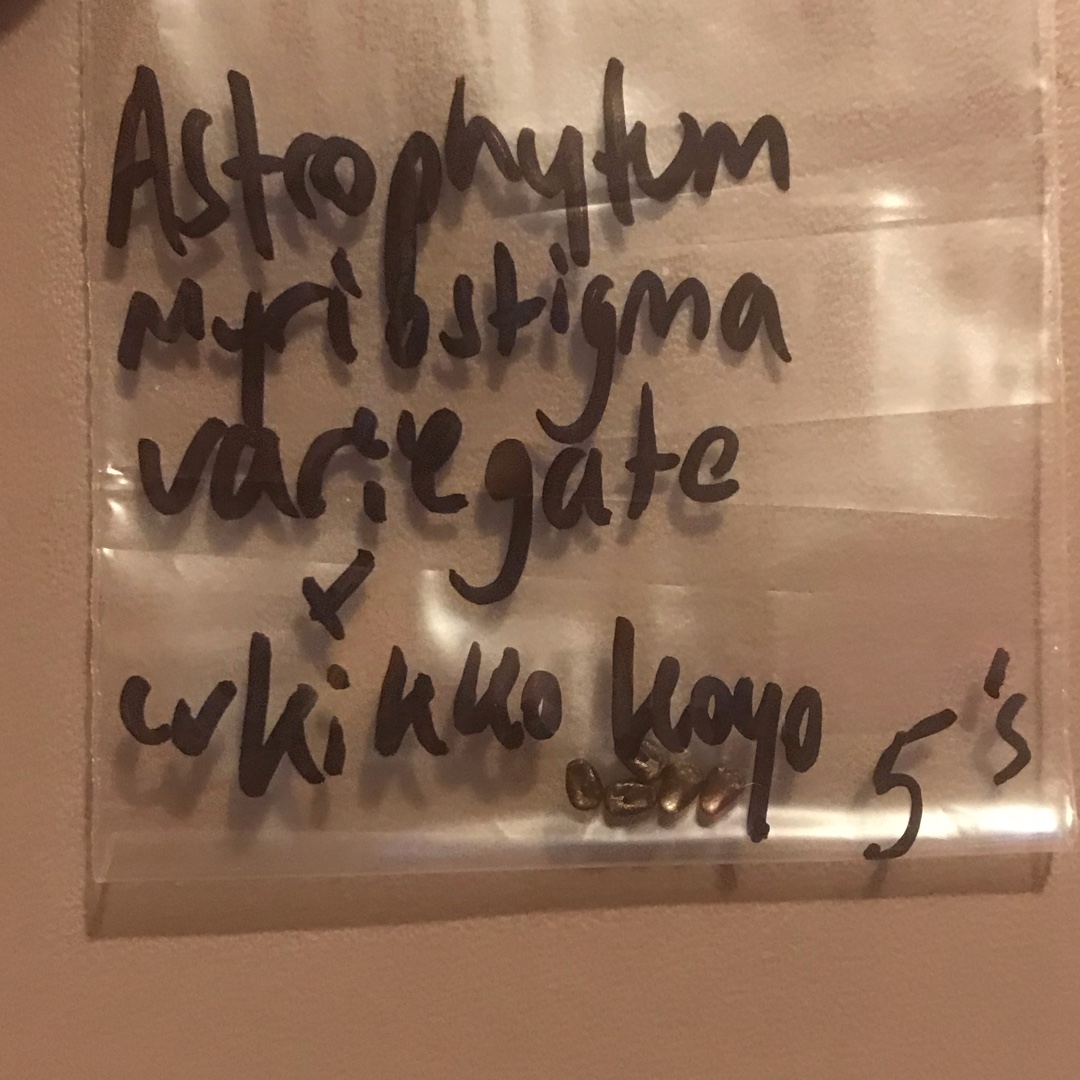 Astrophytum
myriostigma
variegate
x
cv kikko koyo 5's